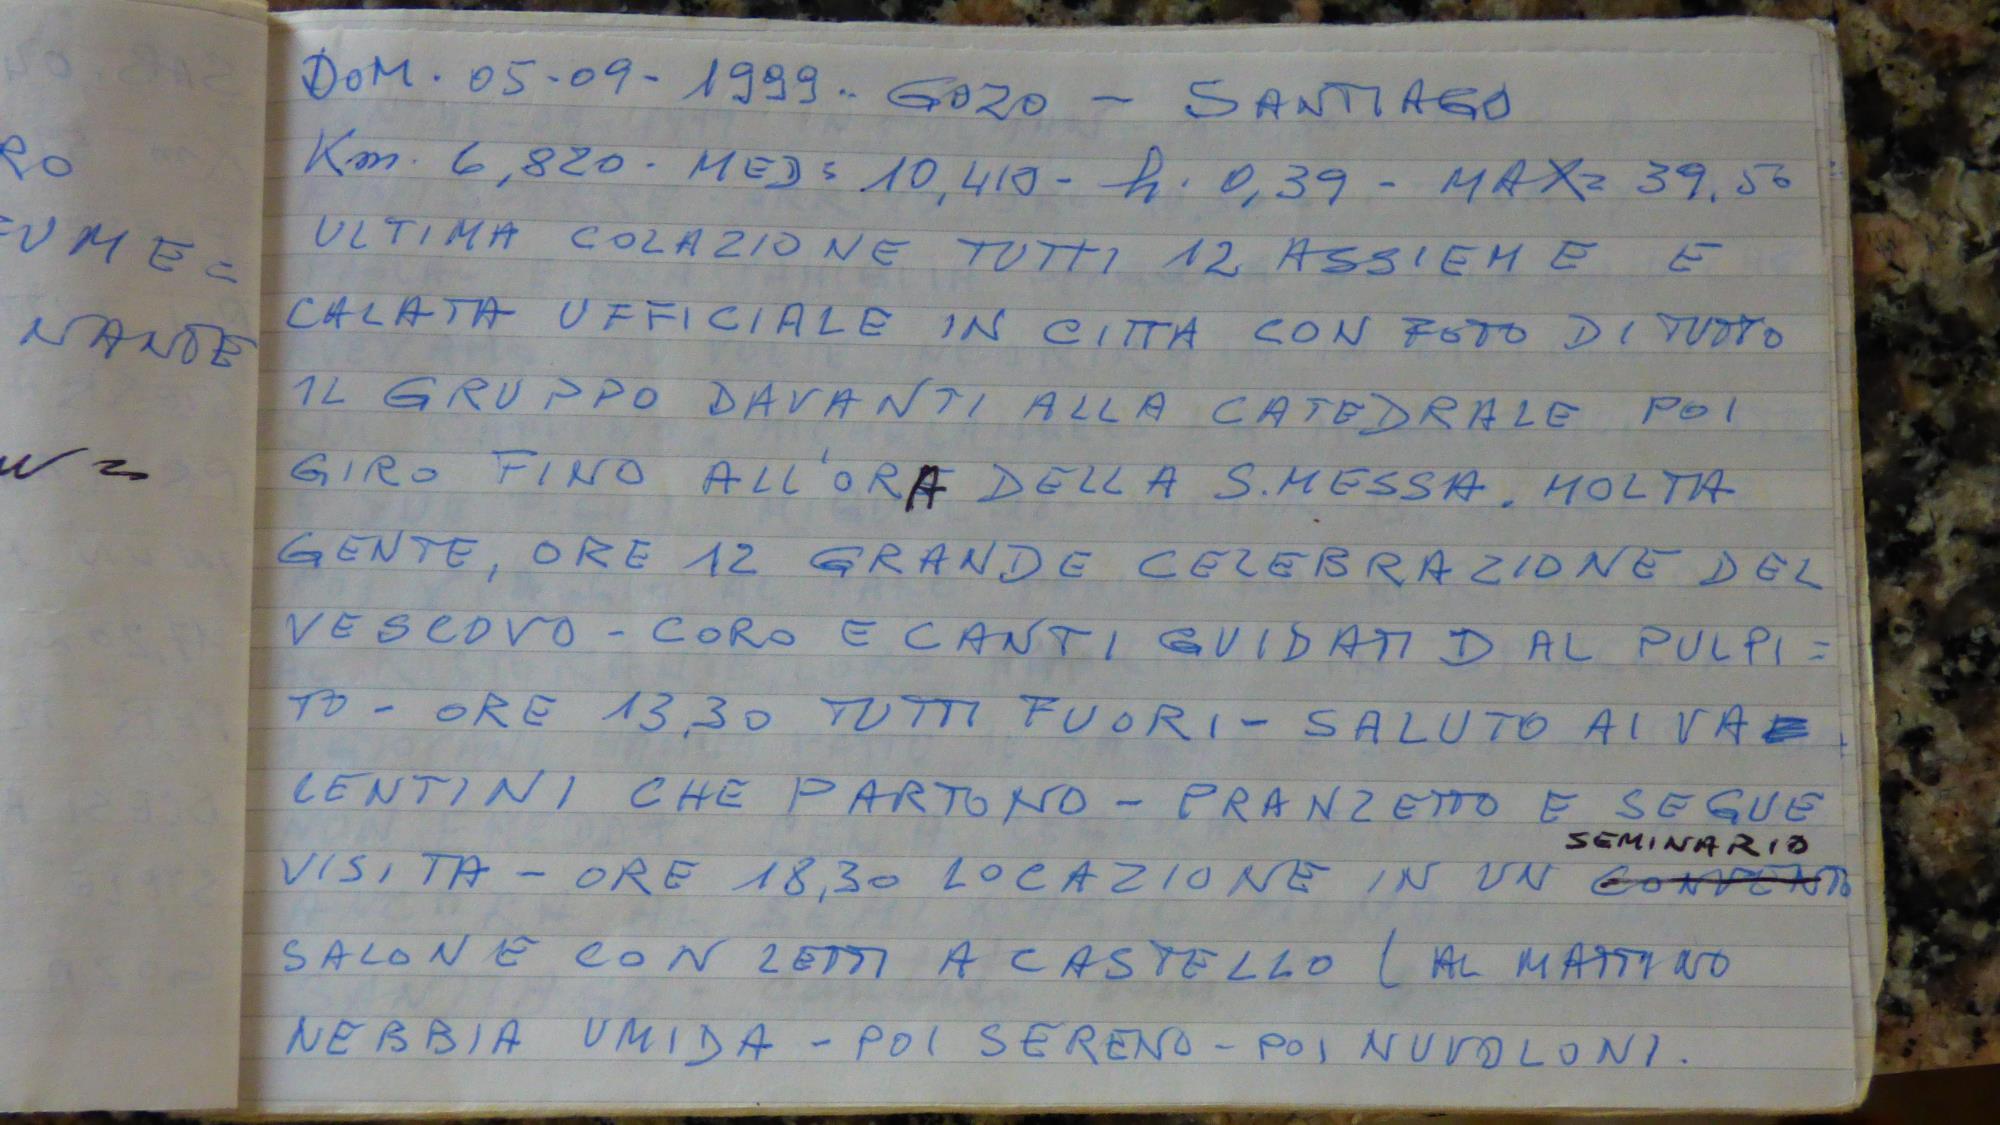 DOM. 05-09-1999.. GOZO - SANTIAGO
Km. 6,820. MED: 10,410 - h. 0,39 - MAX= 39,50
ULTIMA COLAZIONE TUTTI 12 ASSIEME E
CALATA UFFICIALE IN CITTA CON FOTO DI TUTTO
IL GRUPPO DAVANTI ALLA CATEDRALE POI
GIRO FINO ALL'ORA DELLA S.MESSA. MOLTA
GENTE, ORE 12 GRANDE CELEBRAZIONE DEL
VESCOVO - CORO E CANTI GUIDATI DAL PULPI=
TO - ORE 13,30 TUTTI FUORI - SALUTO AI VA=
LENTINI CHE PARTONO - PRANZETTO E SEGUE
VISITA - ORE 18,30 LOCAZIONE IN UN CONVENTO SEMINARIO
SALONE CON LETTI A CASTELLO ( AL MATTINO
NEBBIA UMIDA - POI SERENO - POI NUVOLONI.
RO
EUME=
NANTE